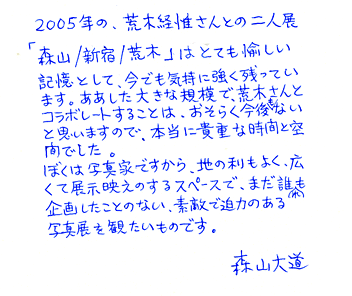 2005年の、荒木経惟さんとの二人展
「森山/新宿/荒木」はとても愉しい
記憶として、今でも気持に強く残ってい
ます。ああした大きな規模で、荒木さんと
コラボレートすることは、おそらく今後もない
と思いますので、本当に貴重な時間と空
間でした。
ぼくは写真家ですから、地の利もよく、広
くて展示映えのするスペースで、まだ誰も
企画したことのない、素敵で迫力のある
写真展を観たいものです。
森山大道